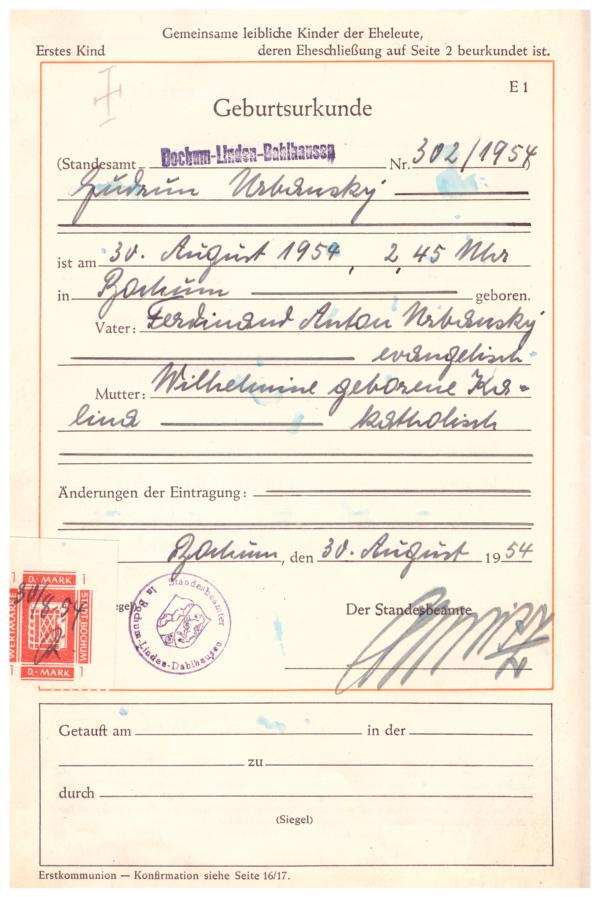 Gemeinsame leibliche Kinder der Eheleute,
Erstes Kind deren Eheschließung auf Seite 2 beurkundet ist.
E 1
Geburtsurkunde
(Standesamt Bochum-Linden-Dahlhausen Nr. 302/1954)
Gudrun Urbansky
ist am 30. August 1954, 2,45 Uhr
in Bochum geboren.
Vater: Ferdinand Anton Urbansky
evangelisch
Mutter: Wilhelmine geborene Ka-
lina katholisch
Änderungen der Eintragung:
Bochum, den 30. August 1954
Der Standesbeamte
Standesbeamter
in Bochum-Linden-Dahlhausen
1 D.-MARK 1
WERTMARKE
STADT BOCHUM
30/8.54
1 D.-MARK 1
Getauft am in der
zu
durch
(Siegel)
Erstkommunion — Konfirmation siehe Seite 16/17.